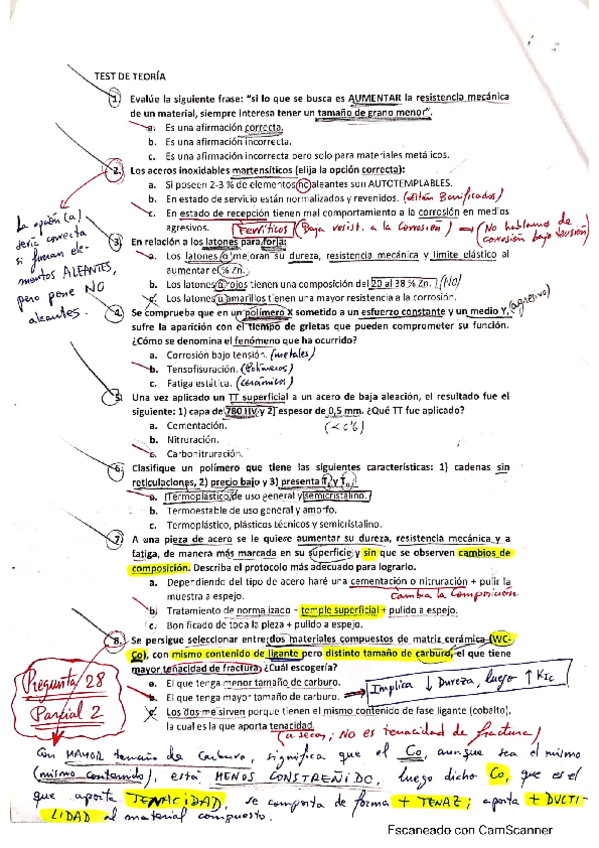 TEST DE TEORÍA
1. Evalúe la siguiente frase: "si lo que se busca es AUMENTAR la resistencia mecánica
de un material, siempre interesa tener un tamaño de grano menor".
a. Es una afirmación correcta.
b. Es una afirmación incorrecta.
c. Es una afirmación incorrecta pero solo para materiales metálicos.
2. Los aceros inoxidables martensíticos (elija la opción correcta):
a. Si poseen 2-3 % de elementos no aleantes son AUTOTEMPLABLES.
b. En estado de servicio están normalizados y revenidos. (están Bonificados)
c. En estado de recepción tienen mal comportamiento a la corrosión en medios
agresivos. Ferríticos (Baja resist. a la corrosión) → (No hablamos de
corrosión bajo tensión)
La opción (a)
sería correcta
si fueran ele-
mentos ALEANTES,
pero pone NO
aleantes.
3. En relación a los latones para forja:
a. Los latones α mejoran su dureza, resistencia mecánica y límite elástico al
aumentar el % Zn.
b. Los latones α rojos tienen una composición del 20 al 38 % Zn. (NO)
c. Los latones α amarillos tienen una mayor resistencia a la corrosión.
4. Se comprueba que en un polímero X sometido a un esfuerzo constante y un medio Y, (agresivo)
sufre la aparición con el tiempo de grietas que pueden comprometer su función.
¿Cómo se denomina el fenómeno que ha ocurrido?
a. Corrosión bajo tensión. (metales)
b. Tensofisuración. (Polímeros)
c. Fatiga estática. (cerámicos)
5. Una vez aplicado un TT superficial a un acero de baja aleación, el resultado fue el
siguiente: 1) capa de 780 HV y 2) espesor de 0,5 mm. ¿Qué TT fue aplicado?
a. Cementación.
b. Nitruración.
c. Carbonitruración.
6. Clasifique un polímero que tiene las siguientes características: 1) cadenas sin
reticulaciones, 2) precio bajo y 3) presenta Tg y Tm.
a. Termoplástico, de uso general y semicristalino.
b. Termoestable de uso general y amorfo.
c. Termoplástico, plásticos técnicos y semicristalino.
7. A una pieza de acero se le quiere aumentar su dureza, resistencia mecánica y a
fatiga, de manera más marcada en su superficie y sin que se observen cambios de
composición. Describa el protocolo más adecuado para lograrlo.
a. Dependiendo del tipo de acero haré una cementación o nitruración + pulir la
muestra a espejo. Cambia la Composición
b. Tratamiento de normalizado + temple superficial + pulido a espejo.
c. Bonificado de toda la pieza + pulido a espejo.
8. Se persigue seleccionar entre dos materiales compuestos de matriz cerámica (WC-
Co), con mismo contenido de ligante pero distinto tamaño de carburo, el que tiene
mayor tenacidad de fractura, ¿Cuál escogería?
a. El que tenga menor tamaño de carburo.
b. El que tenga mayor tamaño de carburo. → Implica ↓ Dureza, luego ↑ KIC
c. Los dos me sirven porque tienen el mismo contenido de fase ligante (cobalto),
la cual es la que aporta tenacidad.
(a secas; NO es tenacidad de fractura)
Pregunta 28
Parcial 2
Con MAYOR tamaño de Carburo, significa que el Co, aunque sea el mismo
(mismo contenido), está MENOS CONSTREÑIDO, luego dicho Co, que es el
que aporta TENACIDAD, se comporta de forma + TENAZ; aporta + DUCTI-
LIDAD al material compuesto.
Escaneado con CamScanner